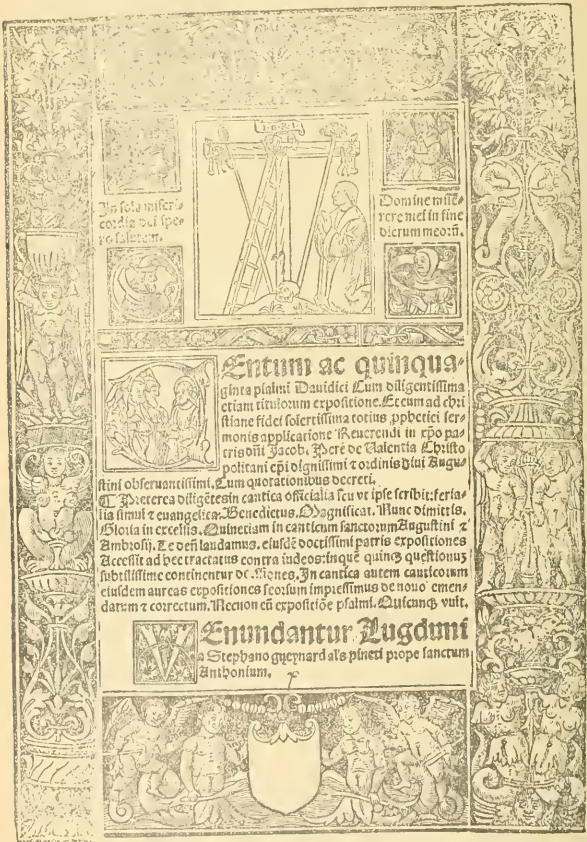 I·N·R·I
In sola miseri-
cordia dei spe-
ro salutem.
Domine mise-
rere mei in fine
dierum meorū.
CEntum ac quinqua-
ginta psalmi Dauidici Cum diligentissima
etiam titulorum expositione. Et cum ad chri
stiane fidei solertissima totius ꝓphetici ser-
monis applicatione Reuerendi in xp̄o pa-
tris dn̄i Jacob. Perē de Valentia Christo
politani ep̄i dignissimi ⁊ ordinis diui Augu-
stini obseruantissimi. Cum quotationibus decreti.
¶ Preterea diligētes in cantica officialia seu vt ipse scribit: feria-
lia simul ⁊ euangelica. Benedictus. Magnificat. Nunc dimittis.
Gloria in excelsis. Quinetiam in canticum sanctorum Augustini ⁊
Ambrosij. Te deū laudamus. eiusdē doctissimi patris expositiones
Accessit ad hec tractatus contra iudeos: in quē quinqꝫ questionus
subtilissime continentur dc. In cantica autem canticorum
eiusdem aureas expositiones seorsum impressimus de nouo emen
datum ⁊ correctum. Necnon cū expositiōe psalmi. Quicunqꝫ vult.
VEnundantur Lugduni
a Stephano gueynard al's pineti prope sanctum
Anthonium.